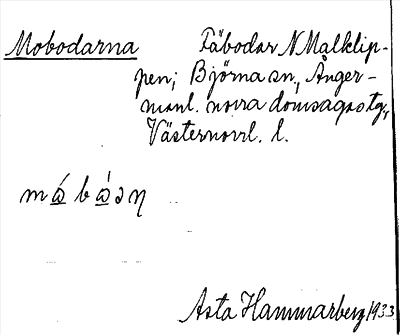 Mobodarna Fäbodar N Malklip-
pen; Björna sn., Ånger-
manl. norra domsagas tg,
Västernorrl. l.
Asta Hammarberg 1933